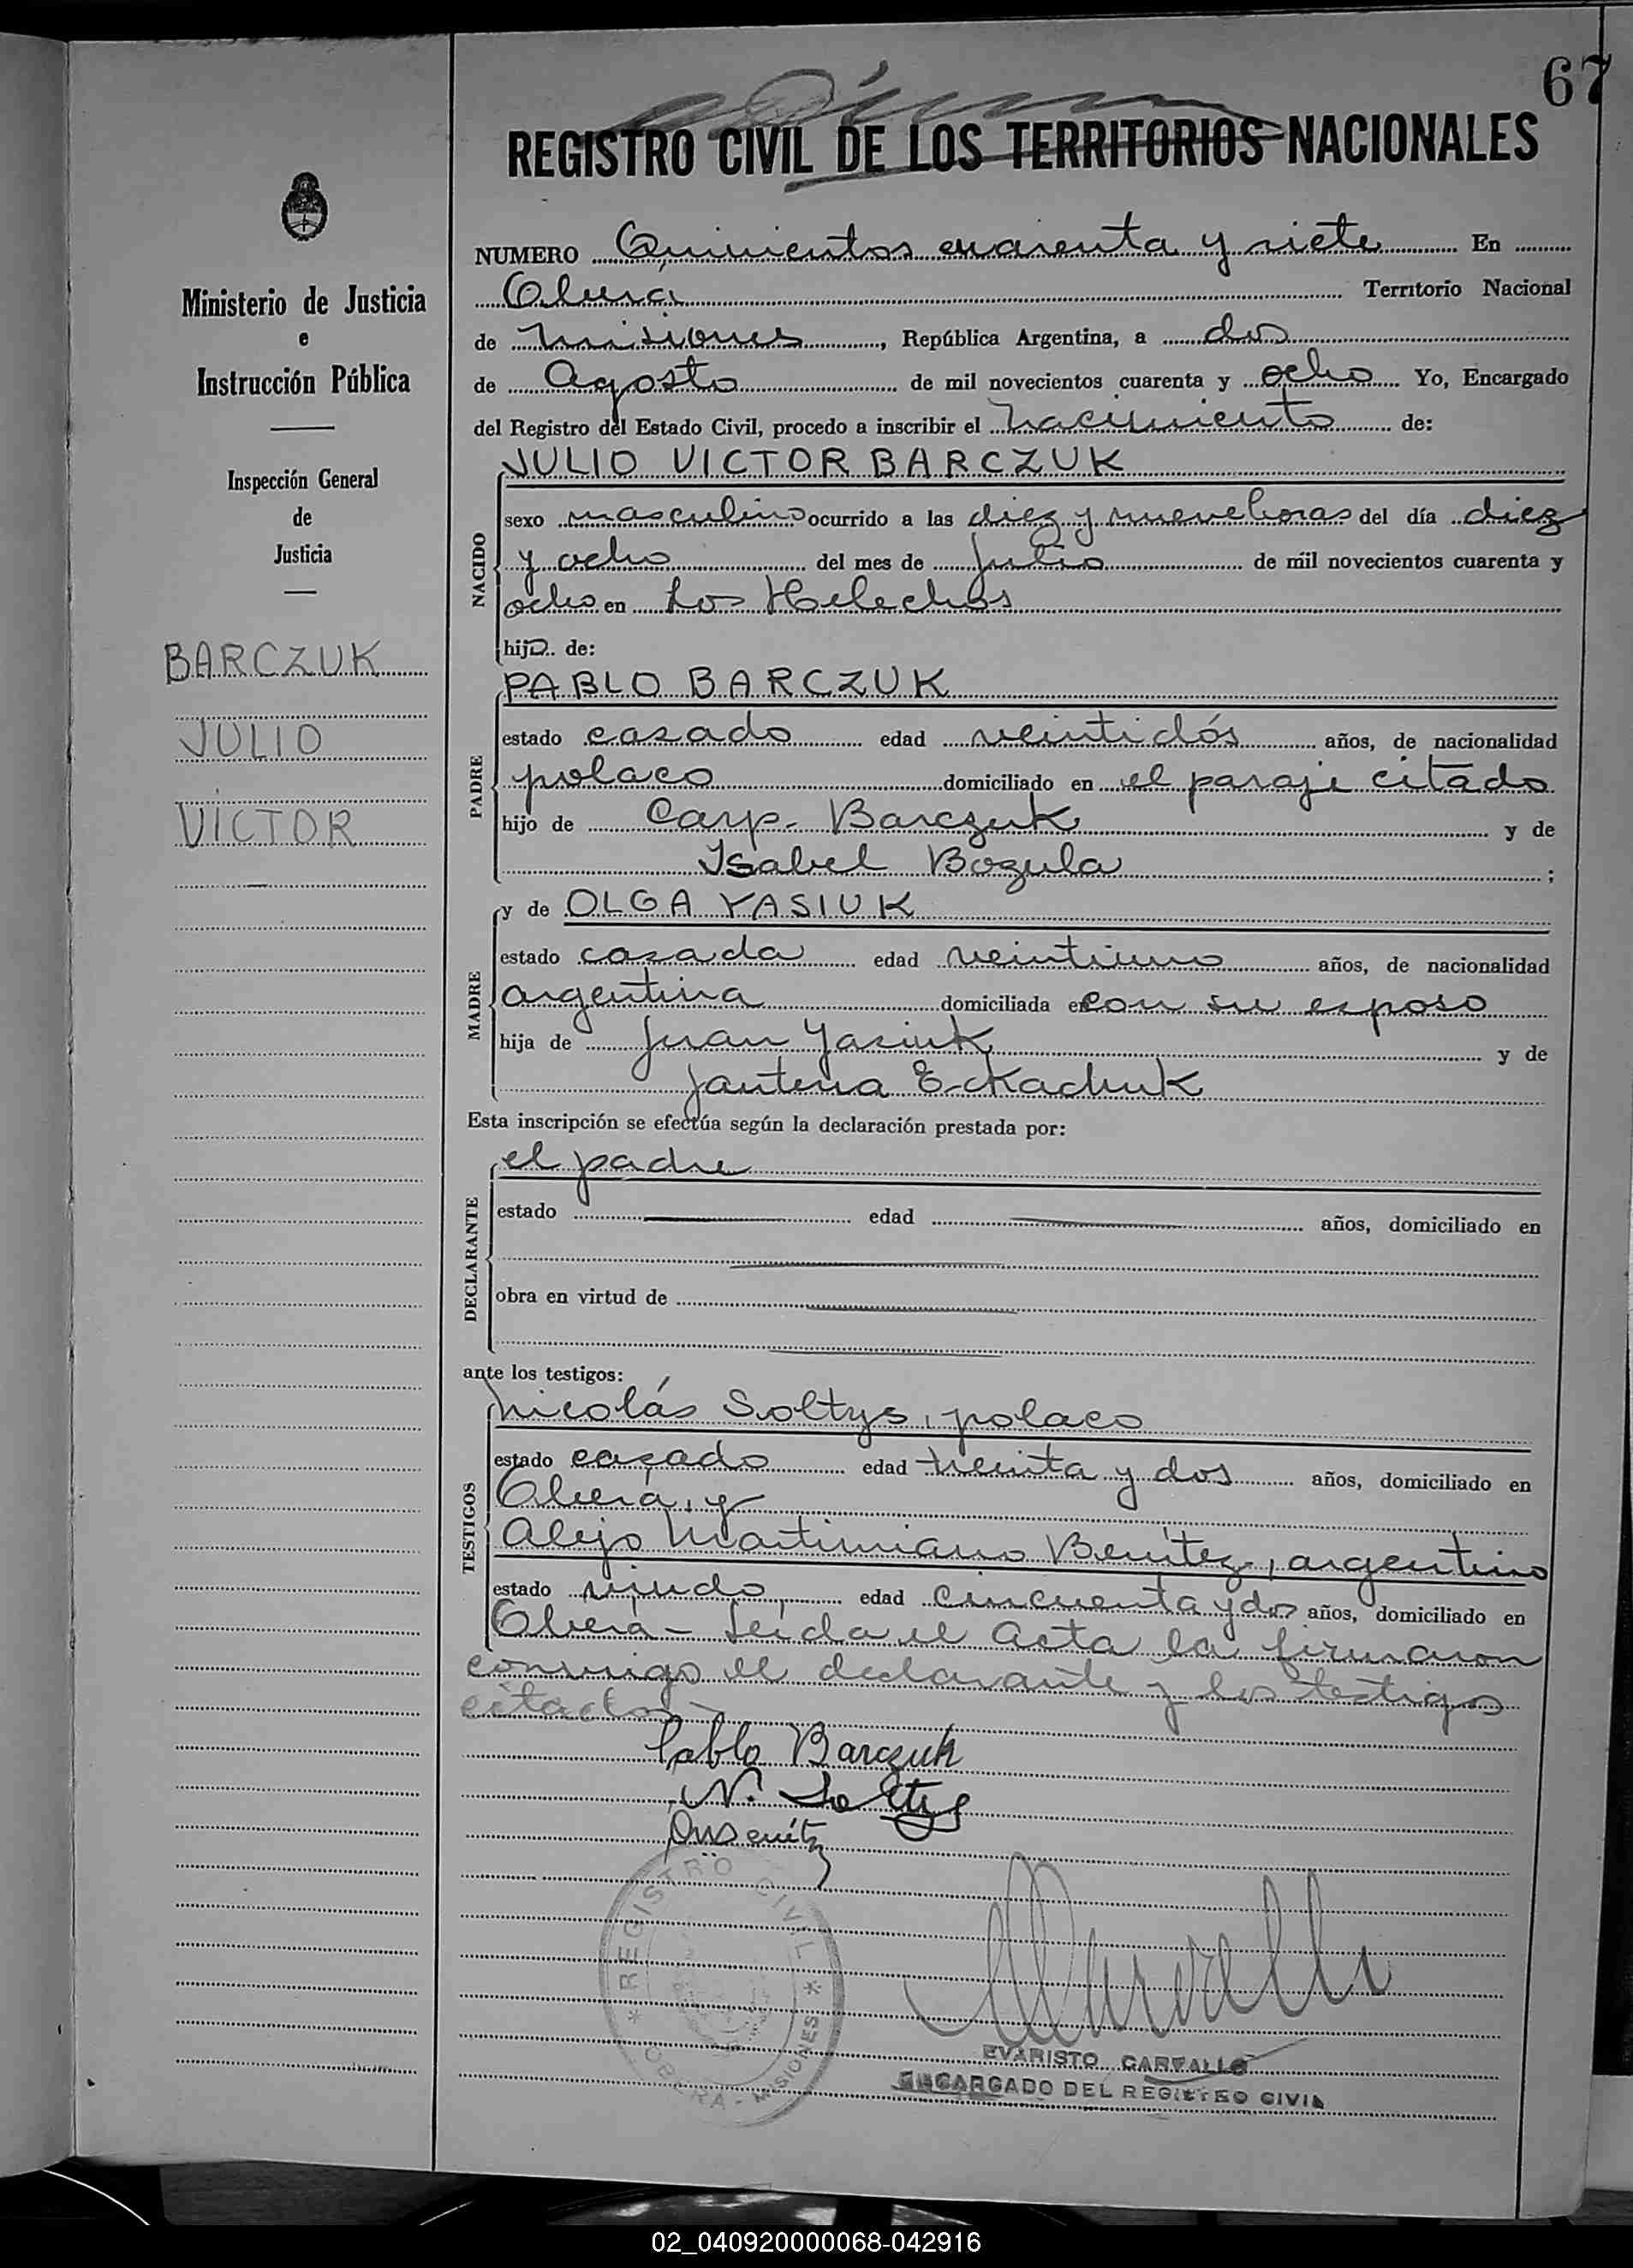 67
REGISTRO CIVIL DE LOS TERRITORIOS NACIONALES
Ministerio de Justicia
e
Instrucción Pública
Inspección General
de
Justicia
BARCZUK
JULIO
VICTOR
NUMERO Quinientos cuarenta y siete En
Oberá Territorio Nacional
de Misiones, República Argentina, a dos
de Agosto de mil novecientos cuarenta y ocho Yo, Encargado
del Registro del Estado Civil, procedo a inscribir el nacimiento de:
JULIO VICTOR BARCZUK
NACIDO
sexo masculino ocurrido a las diez y nueve horas del día diez
y ocho del mes de Julio de mil novecientos cuarenta y
ocho en Los Helechos
hijo de:
PABLO BARCZUK
PADRE
estado casado edad veintidós años, de nacionalidad
polaco domiciliado en el paraje citado
hijo de Carp Barczuk y de
Isabel Bozula;
y de OLGA YASIUK
MADRE
estado casada edad veintiuno años, de nacionalidad
argentina domiciliada en con su esposo
hija de Juan Yasiuk y de
Esta inscripción se efectúa según la declaración prestada por:
el padre
DECLARANTE
estado edad años, domiciliado en
obra en virtud de
ante los testigos:
Nicolás Soltys, polaco
TESTIGOS
estado casado edad treinta y dos años, domiciliado en
Oberá, y
Alejo Martimiano Benítez, argentino
estado viudo, edad cincuenta y dos años, domiciliado en
Oberá - Leída el Acta la firmaron
conmigo el declarante y los testigos
citados
Pablo Barczuk
N. Soltys
REGISTRO CIVIL
OBERA - MISIONES
EVARISTO CARVALLO
ENCARGADO DEL REGISTRO CIVIL
02_040920000068-042916